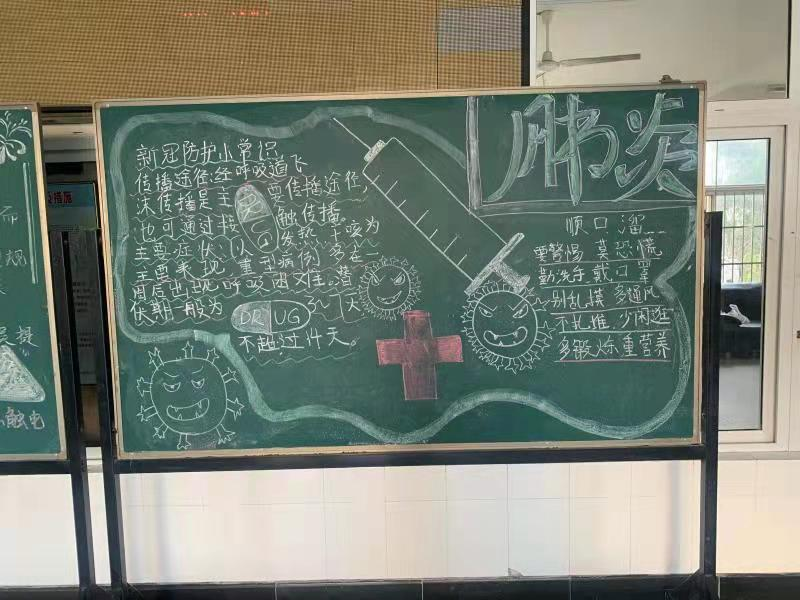 新冠防护小常识
传播途径:经呼吸道飞
沫传播是主要传播途径,
也可通过接触传播。
主要症状:以发热干咳为
主要表现,重型病例多在一
周后出现呼吸困难。潜
伏期一般为3~7天
不超过14天。
DRUG
肺炎
顺口溜
要警惕 莫恐慌
勤洗手 戴口罩
别乱慌 多通风
不扎堆 少闲逛
多锻炼 重营养
措施
而
规
触电